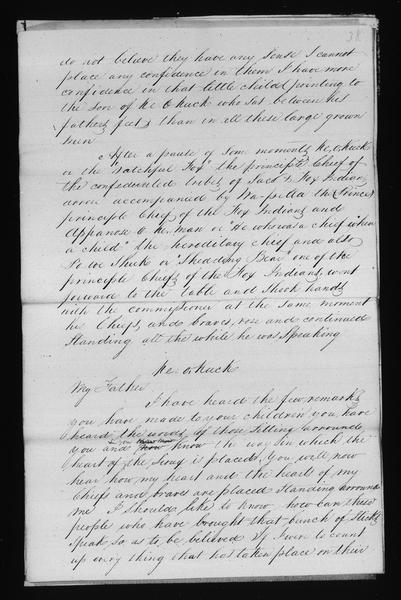 38
do not believe they have any sense I cannot
place any confidence in them I have more
confidence in that little child (pointing to
the son of Ke O kuck who sat between his
fathers feet) than in all these large grown
men
After a pause of some moments Ke, O, kuck
or the "Watchful Fox" the principle Chief of
the confederated tribes of Sacs & Fox Indians
arose accompanied by Wa-pella the (Prince)
principle Chief of the Fox Indians and
Appanose O Ke man or "He who was a chief when
a child" the hereditary chief and also
Po we Shuk or "Shedding Bear" one of the
principle Chiefs of the Fox Indians, went
forward to the table and shook hands
with the commissioner at the same moment
his Chiefs, and braves, rose and continued
Standing all the while he was speaking
Ke-o-kuck
My Father
I have heard the few remarks
you have made to your children you have
heard the words of those sitting arrounde
you and you know the way in which the
heart of the Siouy is placed, You will now
hear how my heart and the hearts of my
Chiefs and braves are placed standing arround
me I should like to know how can these
people who have brought that bunch of sticks
speak, so as to, be believed If I was to count
up every thing that has taken place on their